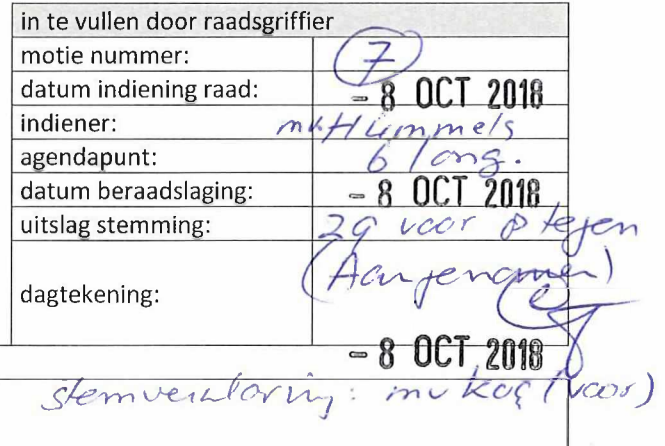 in te vullen door raadsgriffier
motie nummer: 7
datum indiening raad: - 8 OCT 2018
indiener: mv. Hummels
agendapunt: 6 / ong.
datum beraadslaging: - 8 OCT 2018
uitslag stemming: 29 voor 8 tegen
(Aangenomen)
dagtekening:
- 8 OCT 2018
stemverklaring: mv Koç (voor)